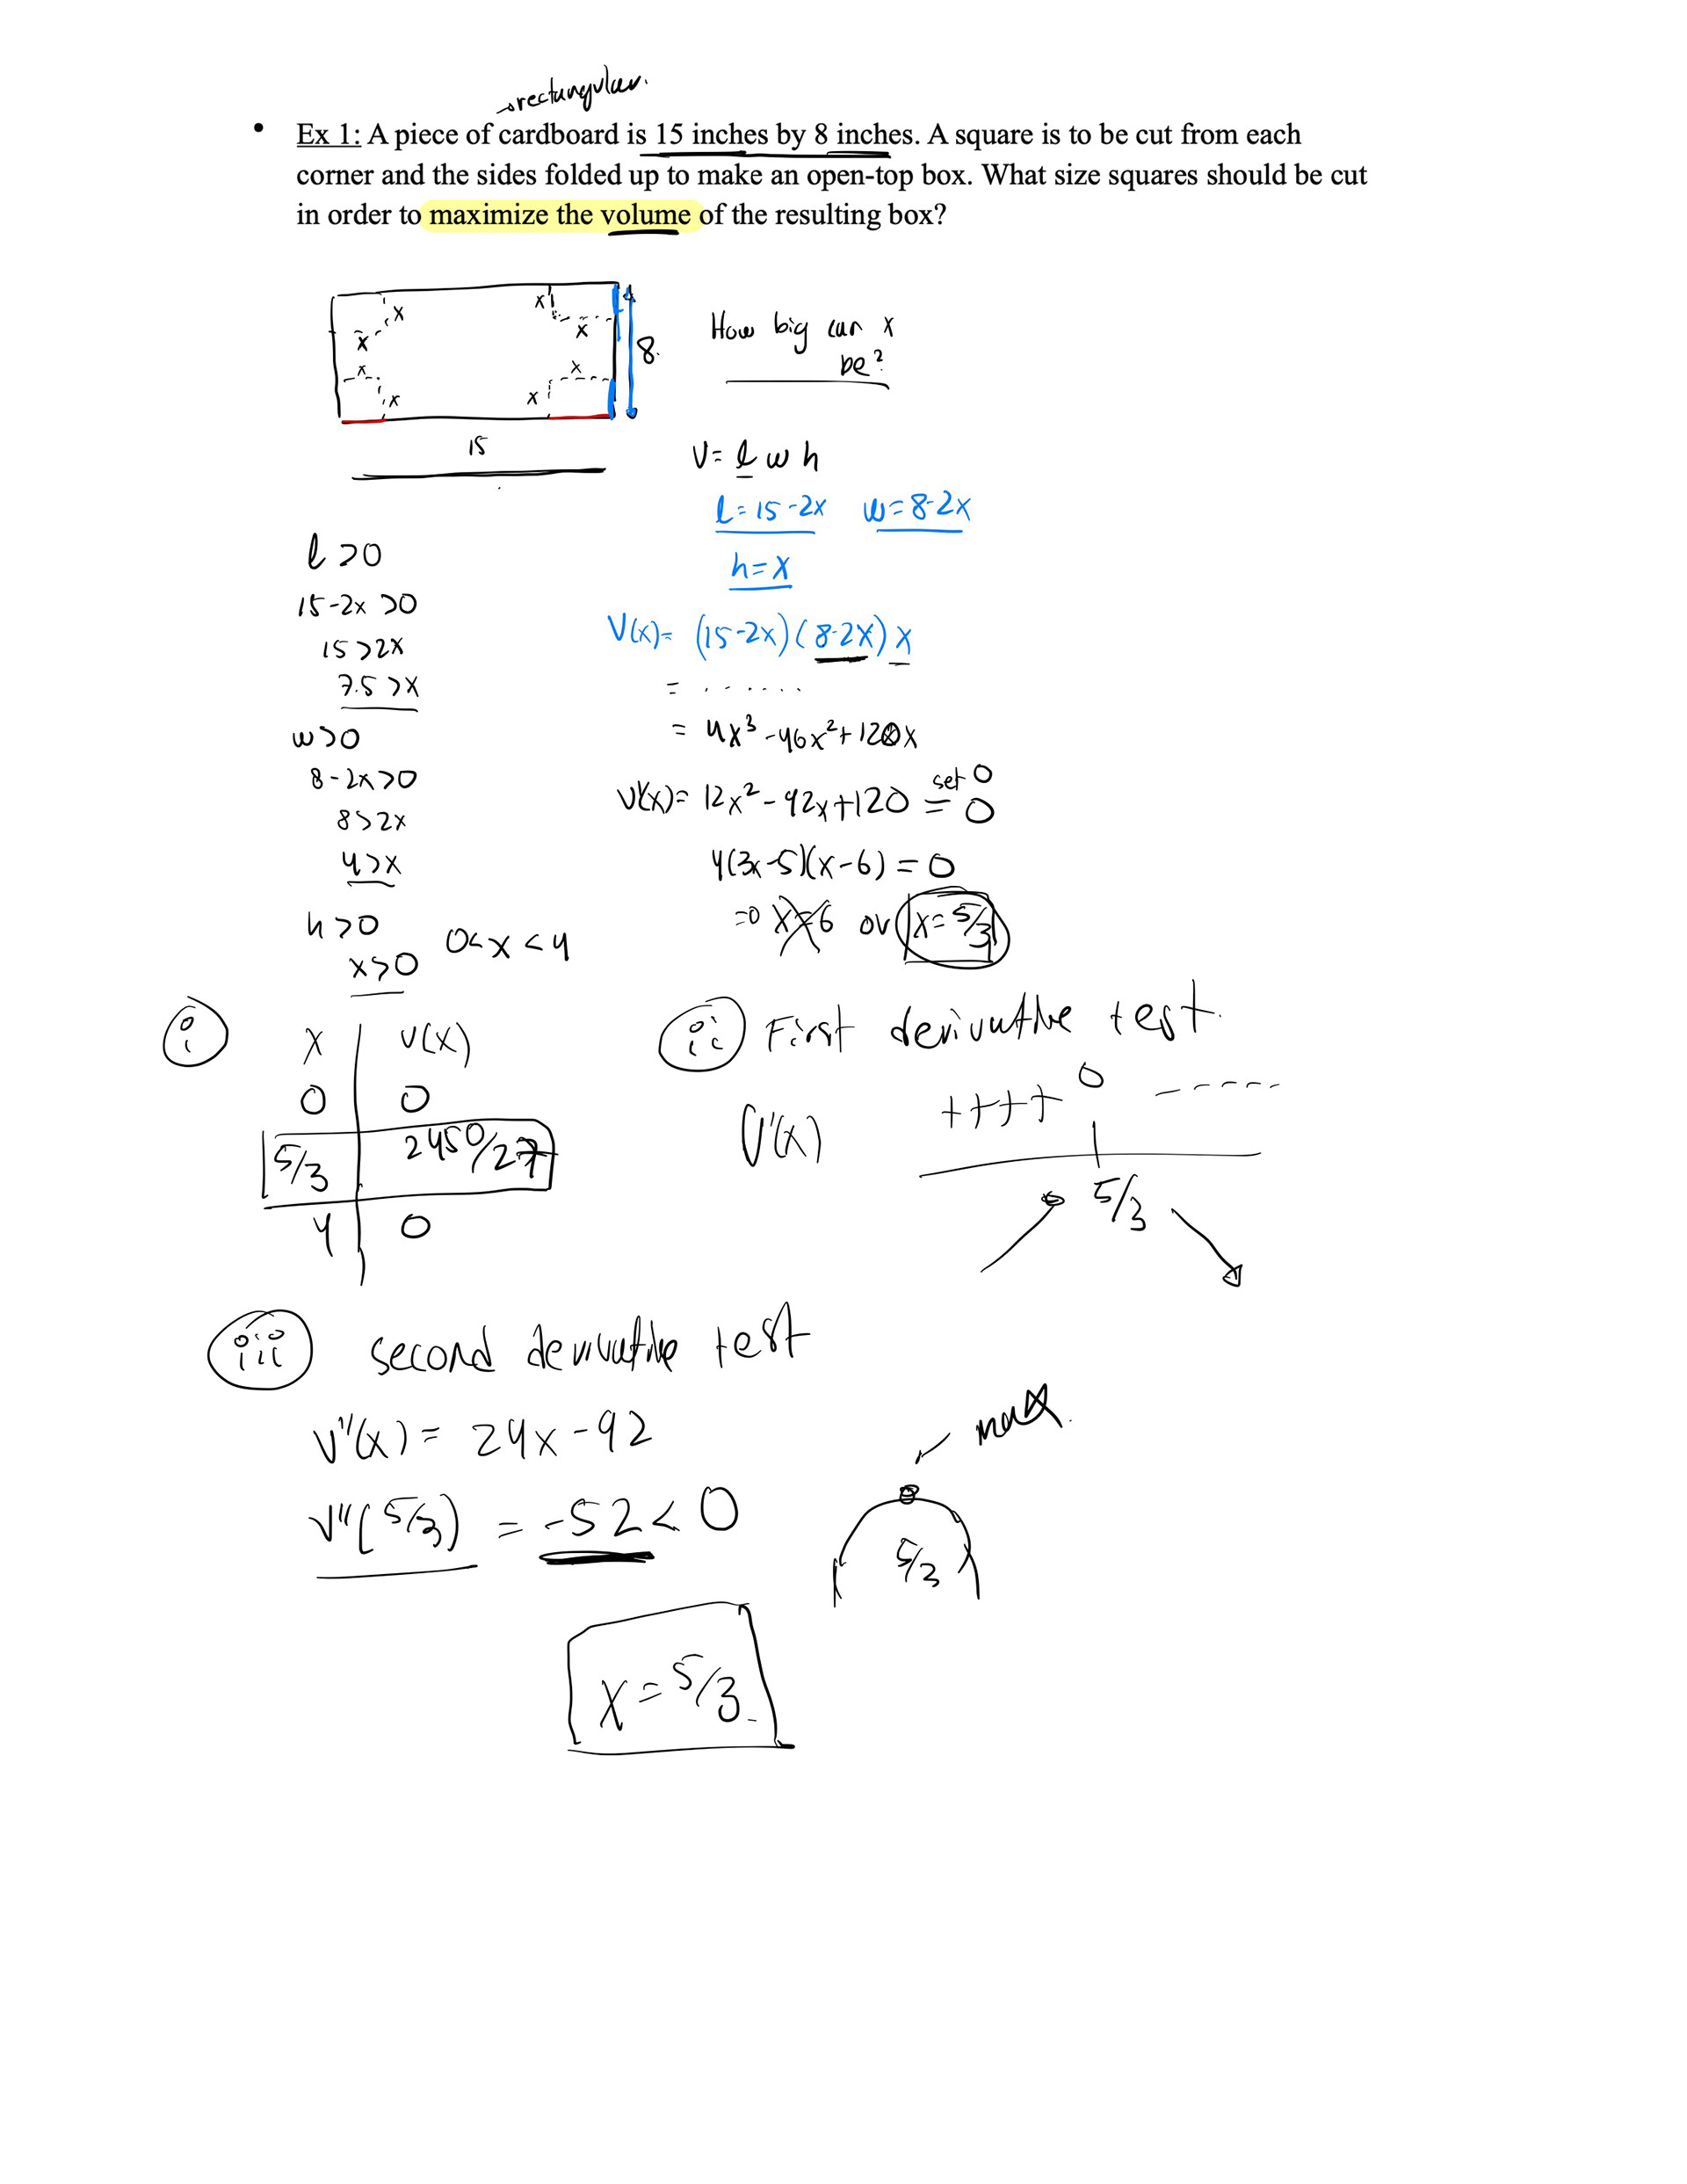 →rectangular.
• Ex 1: A piece of cardboard is 15 inches by 8 inches. A square is to be cut from each
corner and the sides folded up to make an open-top box. What size squares should be cut
in order to maximize the volume of the resulting box?
x x
x x
8
x x
x x
15
How big can x
be?
V= l w h
l = 15-2x w=8-2x
h=x
V(x)= (15-2x)(8-2x)x
= ......
= 4x³ -46x²+120x
V'(x)= 12x² - 92x+120 = 0
set 0
4(3x-5)(x-6) = 0
⇒ x=6 or x= 5/3
l >0
15-2x >0
15 >2x
7.5 >x
w>0
8-2x>0
8>2x
4>x
h >0
x>0
0<x<4
i
x v(x)
0 0
5/3 2450/27
4 0
ii First derivative test.
V'(x) ++++ 0 -----
5/3
iii second derivative test
V''(x) = 24x-92
V''(5/3) = -52 < 0
max.
5/3
x=5/3